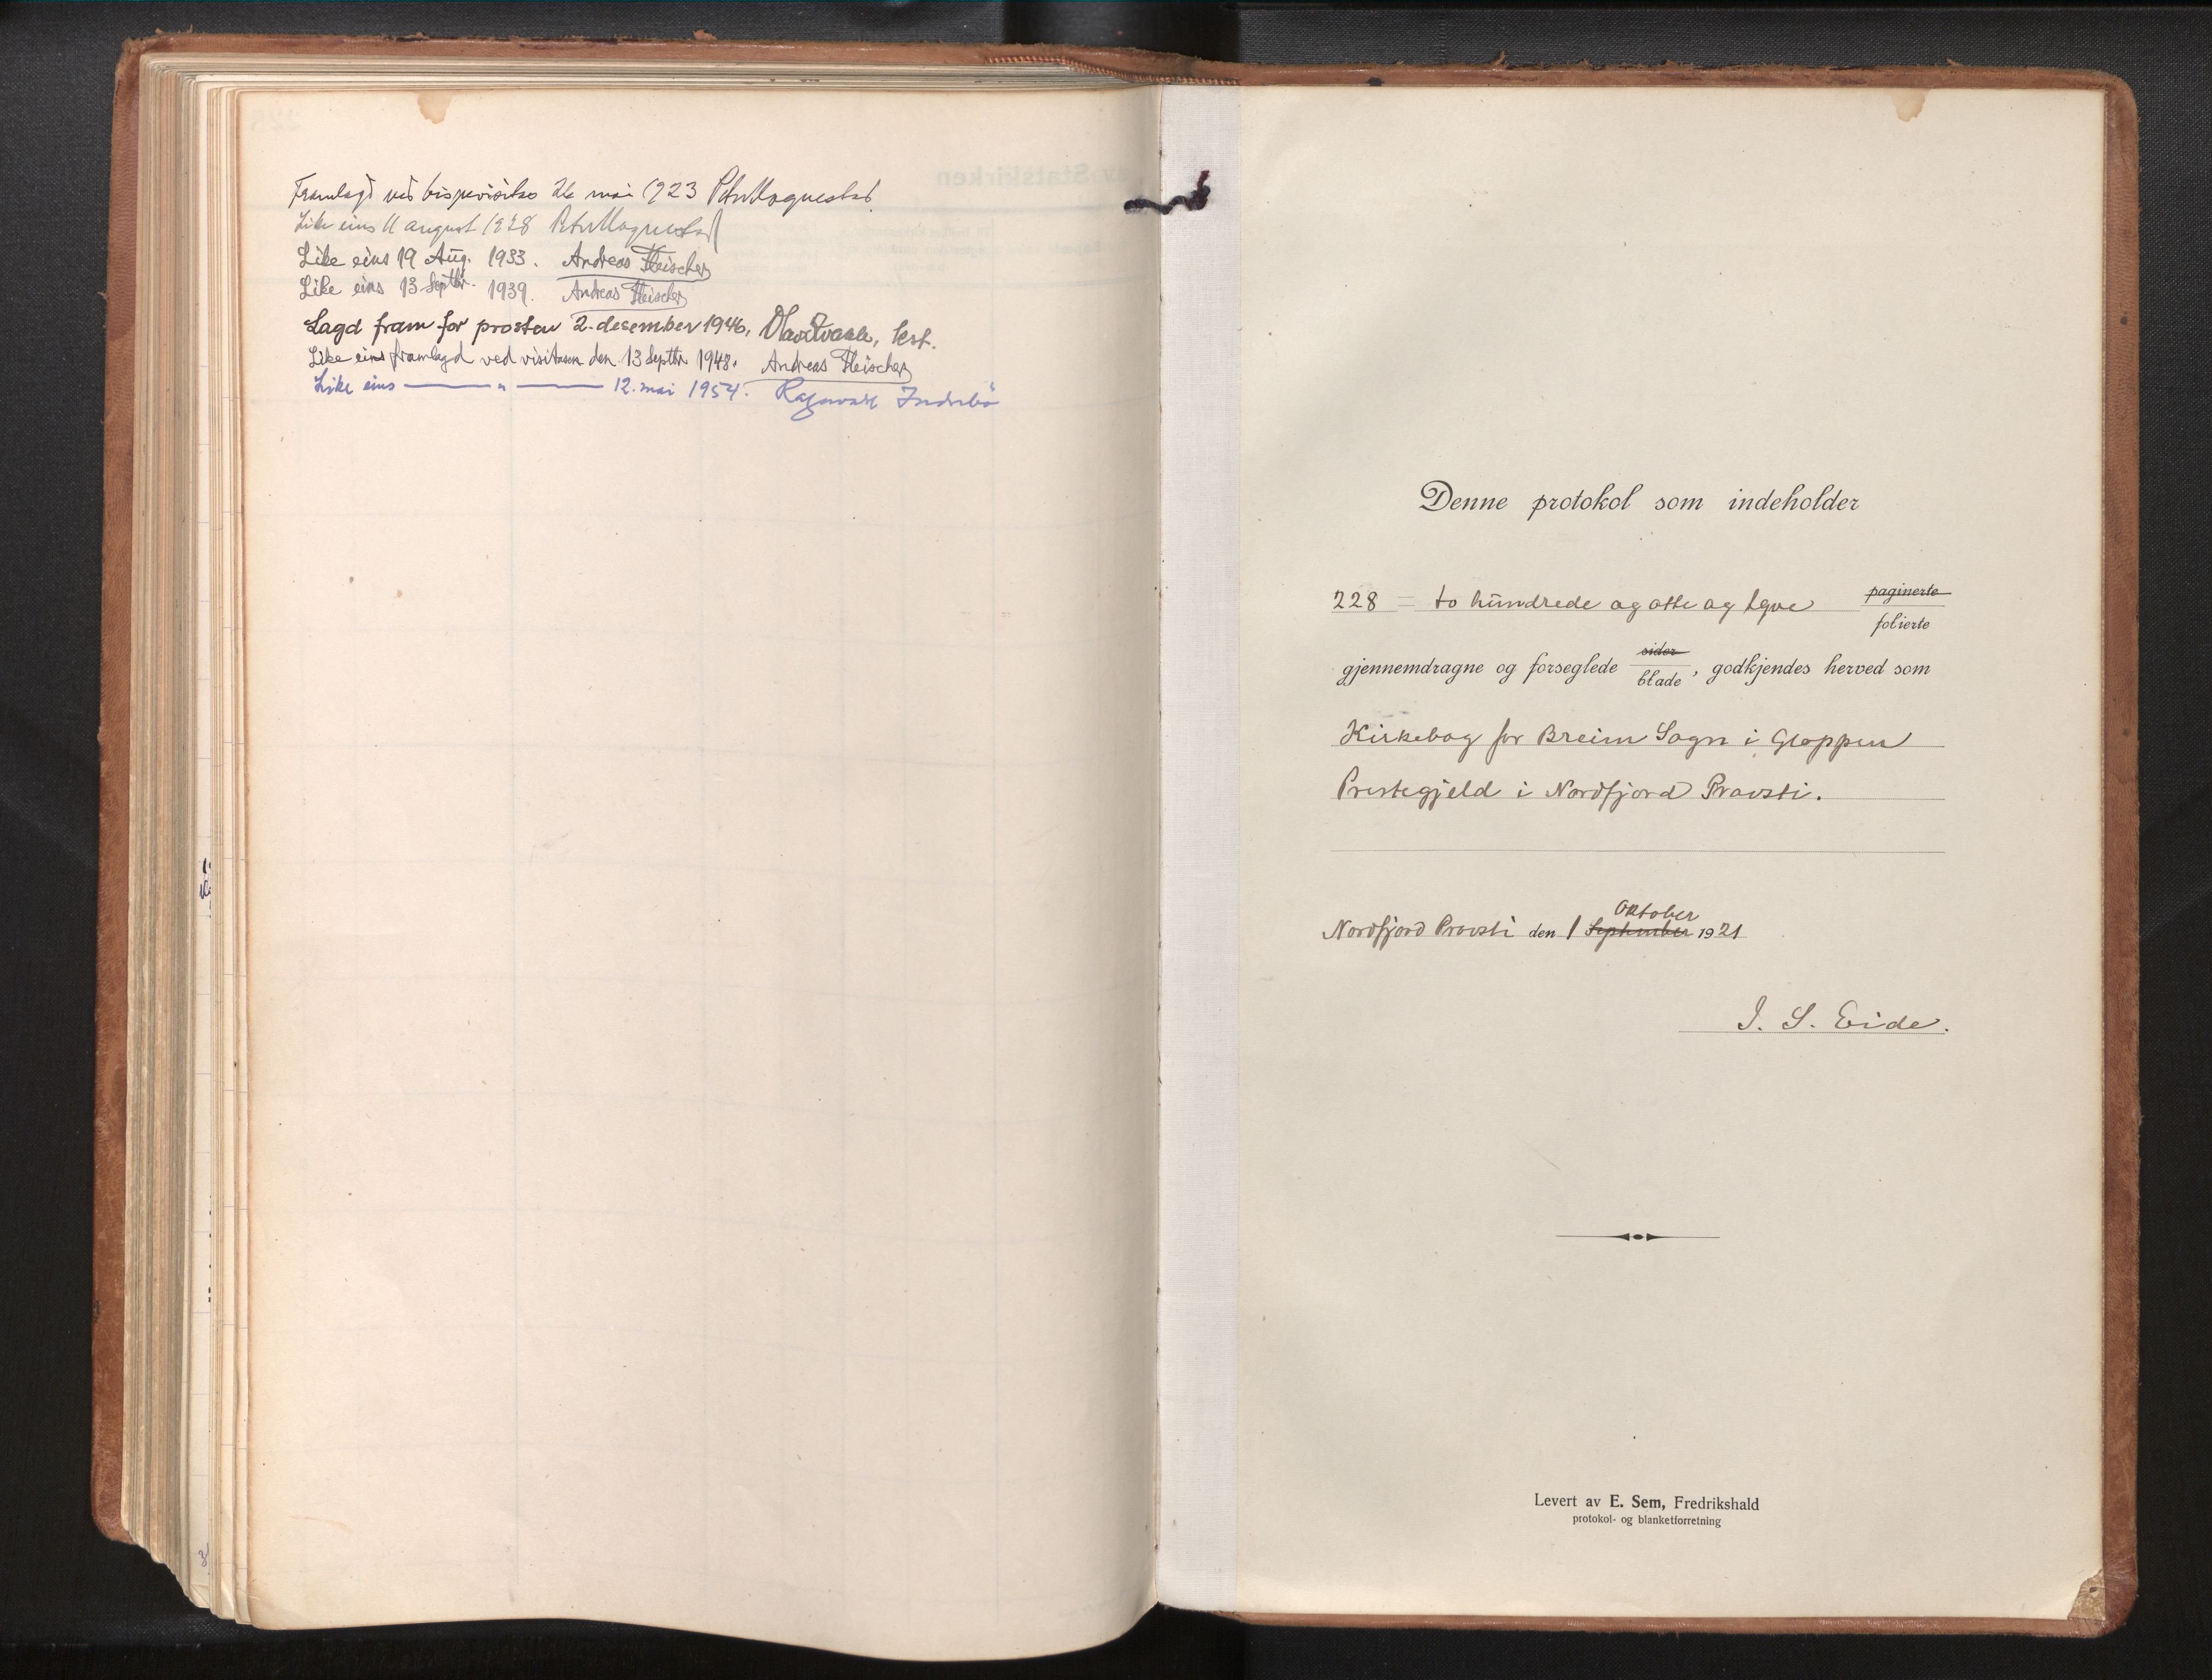 Framlagd ved bispevisitas 26 mai 1923 Peter Hognestad
Like eins 11 august 1928 Peter Hognestad
Like eins 19 Aug. 1933. Andreas Fleischer
Like eins 13 Septbr. 1939. Andreas Fleischer
Lagd fram for prosten 2. desember 1946,
Like eins framlagd ved visitasen den 13 Septbr 1948. Andreas Fleischer
Like eins — " — 12. mai 1954. Ragnvald Indrebö
Denne protokol som indeholder
228 = to hundrede og otte og tyve paginerte
folierte
gjennemdragne og forseglede sider
blade, godkjendes herved som
Kirkebog for Breim Sogn i Gloppen
Prestegjeld i Nordfjord Provsti.
Oktober
Nordfjord Provsti den 1 September 1921
I. S. Eide.
Levert av E. Sem, Fredrikshald
protokol- og blanketforretning